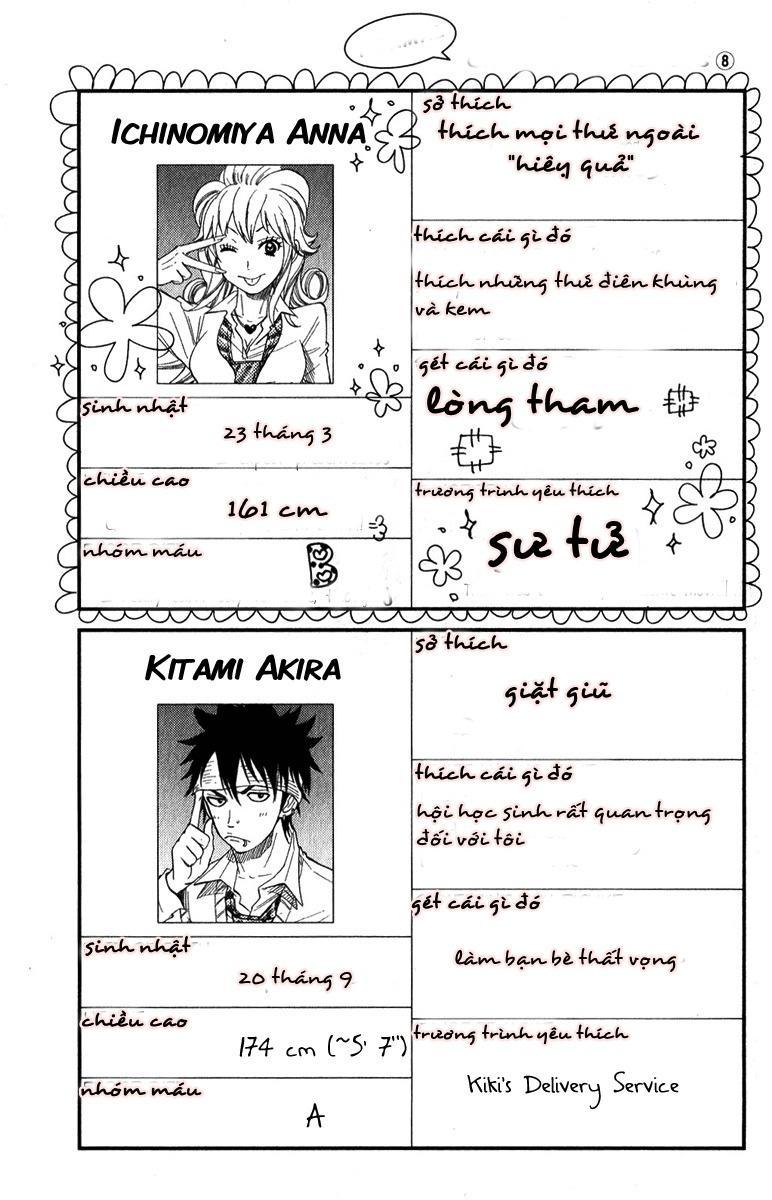 8
ICHINOMIYA ANNA
sở thích
thích mọi thứ ngoài
"hiêu quả"
thích cái gì đó
thích những thứ điên khùng
và kem
gét cái gì đó
lòng tham
trương trình yêu thích
sư tử
sinh nhật
23 tháng 3
chiều cao
161 cm
nhóm máu
B
KITAMI AKIRA
sở thích
giặt giũ
thích cái gì đó
hội học sinh rất quan trọng
đối với tôi
gét cái gì đó
làm bạn bè thất vọng
trương trình yêu thích
Kiki's Delivery Service
sinh nhật
20 tháng 9
chiều cao
174 cm (~5' 7")
nhóm máu
A